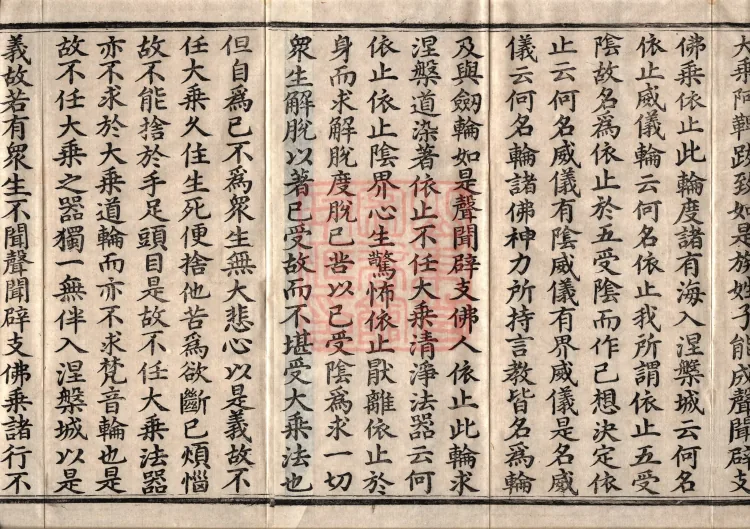 大乘阿鞞跋致如是族姓子能成聲聞辟支
佛乘依止此輪度諸有海入涅槃城云何名
依止威儀輪云何名依止我所謂依止五受
陰故名爲依止於五受陰而作己想決定依
止云何名威儀有陰威儀有界威儀是名威
儀云何名輪諸佛神力所持言教皆名爲輪
及與劔輪如是聲聞辟支佛人依止此輪求
涅槃道染著依止不任大乘清淨法器云何
依止依止陰界心生驚怖依止猒離依止於
身而求解脫度脫己苦以己受陰爲求一切
衆生解脫以著己受故而不堪受大乘法也
但自爲己不爲衆生無大悲心以是義故不
任大乘久住生死便捨他苦爲欲斷己煩惱
故不能捨於手足頭目是故不任大乘法器
亦不求於大乘道輪而亦不求梵音輪也是
故不任大乘之器獨一無伴入涅槃城以是
義故若有衆生不聞聲聞辟支佛乘諸行不